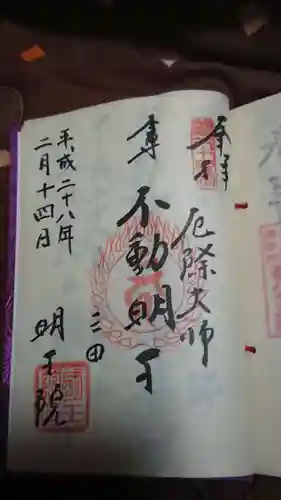 奉拝
厄除大師
不動明王
三田
明王院
平成二十八年
二月十四日